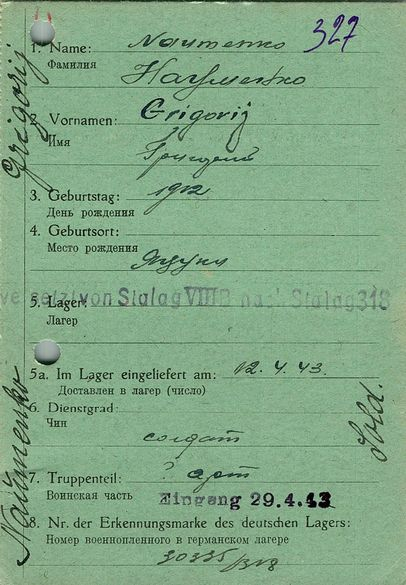 327
1. Name: Naumenko
Фамилия Науменко
2. Vornamen: Grigorij
Имя Григорий
3. Geburtstag: 1912
День рождения
4. Geburtsort:
Место рождения
versetzt von Stalag VIII nach Stalag 318
5. Lager:
Лагер
5a. Im Lager eingeliefert am: 12.4.43.
Доставлен в лагер (число)
6. Dienstgrad:
Чин
солдат
7. Truppenteil: ? арт
Воинская часть Eingang 29.4.43
8. Nr. der Erkennungsmarke des deutschen Lagers:
Номер военнопленного в германском лагере
30335/318
Grigorij
Naumenko
Sold.